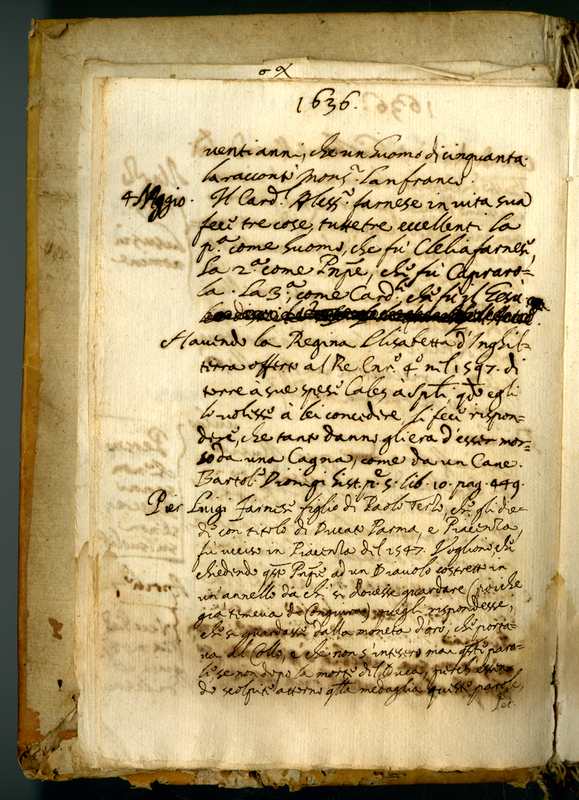 1636.
venti anni, che un huomo di cinquanta.
la racconta Mons.r Lanfranco.
4 Maggio. Il Card.l Aless.o farnese in vita sua
fece tre cose, tutte tre eccellenti la
p.a come huomo, che fù Clelia farnese,
La 2.a come Pnpe, che fù Capraro=
la. La 3.a, come Card.le, che fù il Giesù
Havendo la Regina Elisabetta d'Inghil=
terra offerto al Re Enr.o 4.o nel 1597. di
torre à sue spese Cales à Spli, qdo egli
lo volesse à lei concedere li fece rispon=
dere, che tanto danno gli era d'esser mor=
so da una Cagna, come da un Cane.
Bartol.o Dionigi hist. p.e 5. lib. 10. pag. 449.
Pier Luigi farnese figlio di Paolo Terzo, che gli die=
de con titolo di Ducato Parma, e Piacenza,
fù ucciso in Piacenza del 1547. Vogliono che
chiedendo qsto Pnpe ad un Diavolo costretto in
un annello da chi si dovesse guardare (poiche
già temeva di Congiura) quegli rispondesse,
che si guardasse dalla moneta d'oro, che porta=
va al Collo, e che non s'intesero mai qste paro=
le se non dopo la morte del Duca, perche essen=
do scolpite attorno qlla medaglia queste parole,
Pet.